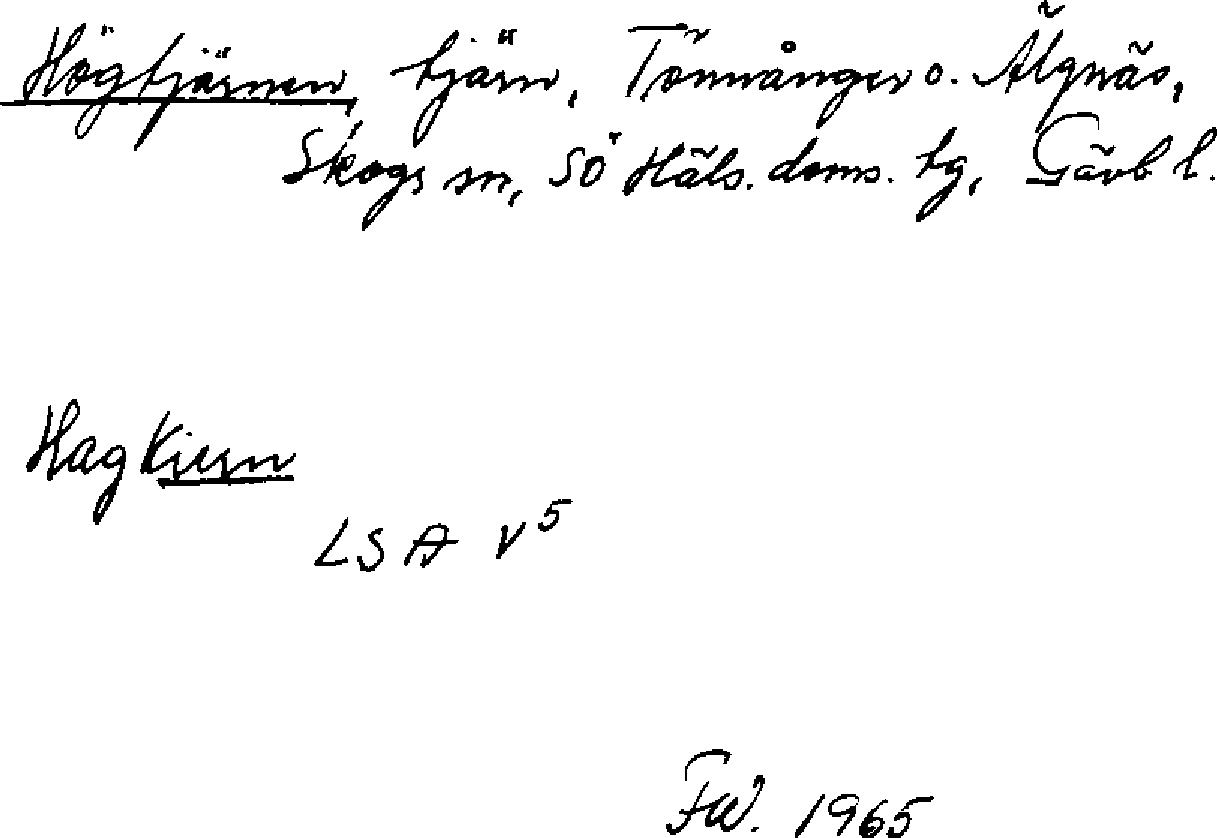 Högtjärnen, tjärn, Tönnånger o. Älgnäs,
Skogs sn, Sö Häls. doms. tg, Gävb l.
Hag Kiern
LSA V5
FW. 1965